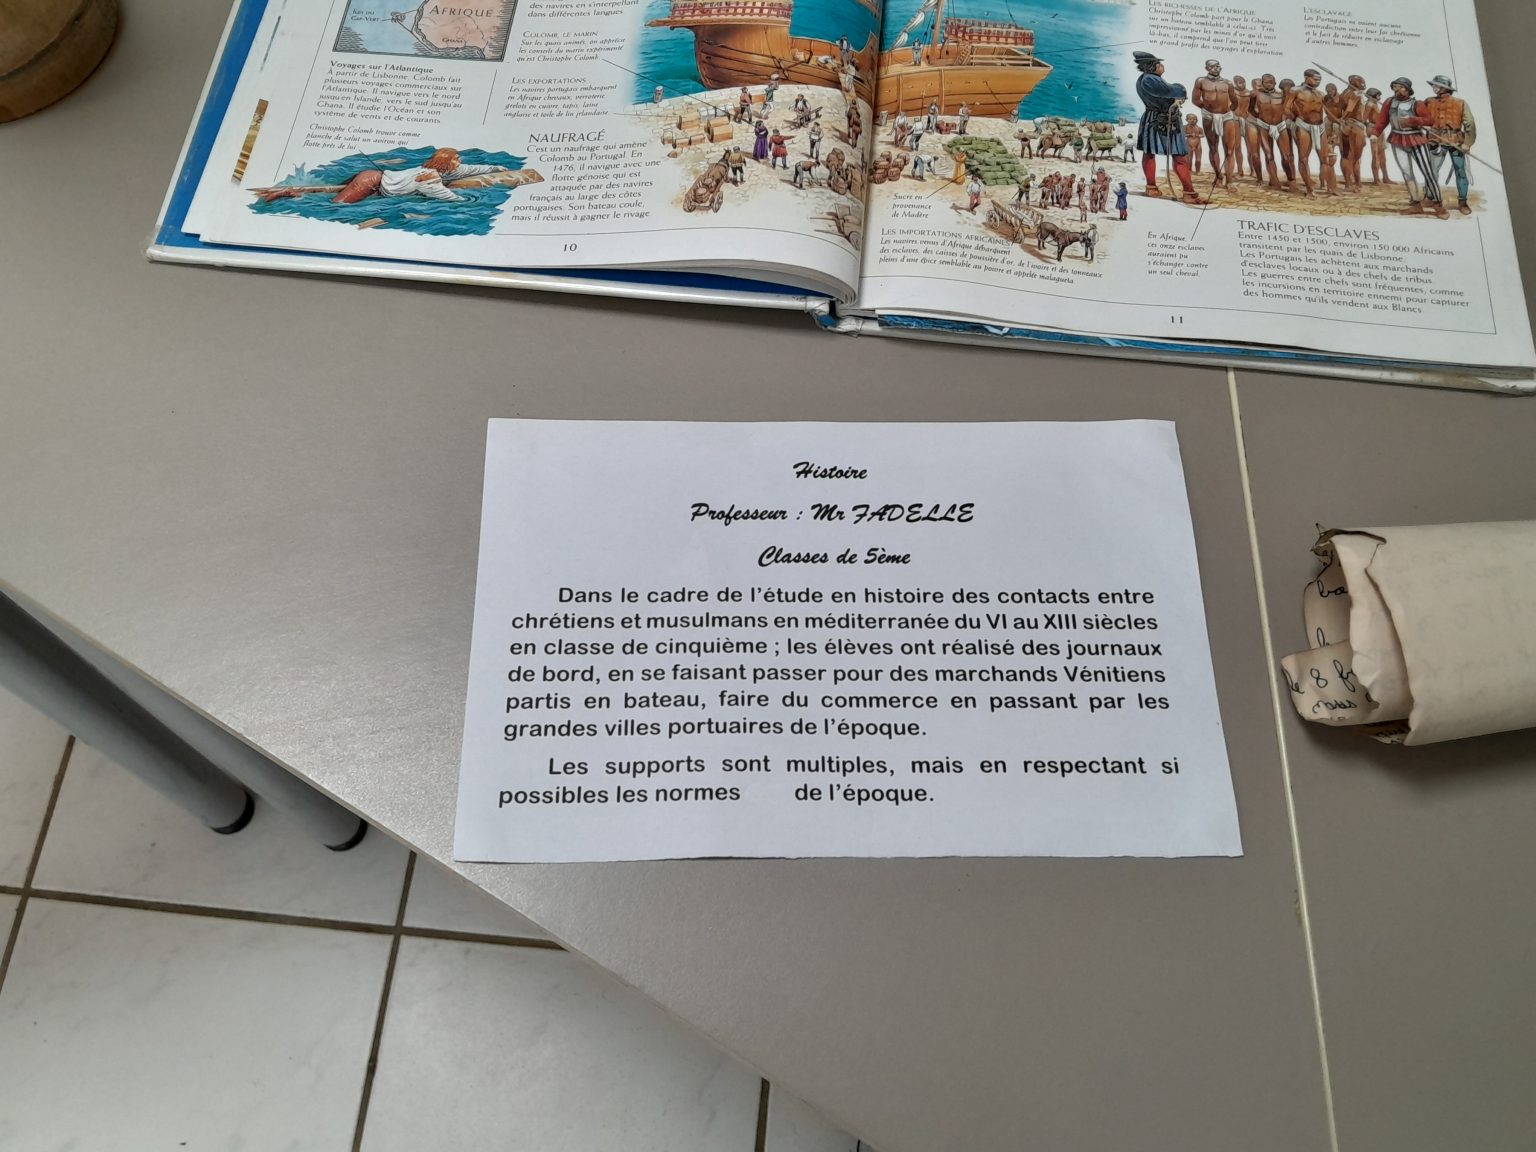 des navires en s'interpellant
dans différentes langues.
ÎLES DU
CAP-VERT
AFRIQUE
COLOMB, LE MARIN
Sur les quais animés, on apprécie
les conseils du marin expérimenté
qu'est Christophe Colomb
Voyages sur l'Atlantique
À partir de Lisbonne, Colomb fait
plusieurs voyages commerciaux sur
l'Atlantique. Il navigue vers le nord
jusqu'en Islande, vers le sud jusqu'au
Ghana. Il étudie l'Océan et son
système de vents et de courants.
LES EXPORTATIONS
Les navires portugais embarquent
en Afrique chevaux, verroterie
grelots en cuivre, tapis, laine
anglaise et toile de lin irlandaise.
Christophe Colomb trouve comme
planche de salut un aviron qui
flotte près de lui
NAUFRAGÉ
C'est un naufrage qui amène
Colomb au Portugal. En
1476, il navigue avec une
flotte génoise qui est
attaquée par des navires
français au large des côtes
portugaises. Son bateau coule,
mais il réussit à gagner le rivage.
10
LES RICHESSES DE L'AFRIQUE
Christophe Colomb part pour le Ghana
sur un bateau semblable à celui-ci. Très
impressionné par les mines d'or qu'il voit
là-bas, il comprend que l'on peut tirer
un grand profit des voyages d'exploration.
L'ESCLAVAGE
Les Portugais ne voient aucune
contradiction entre leur foi chrétienne
et le fait de réduire en esclavage
d'autres hommes.
Sucre en
provenance
de Madère
LES IMPORTATIONS AFRICAINES
Les navires venus d'Afrique débarquent
des esclaves, des caisses de poussière d'or, de l'ivoire et des tonneaux
pleins d'une épice semblable au poivre et appelée malagueta.
En Afrique,
ces onze esclaves
auraient pu
s'échanger contre
un seul cheval.
TRAFIC D'ESCLAVES
Entre 1450 et 1500, environ 150 000 Africains
transitent par les quais de Lisbonne.
Les Portugais les achètent aux marchands
d'esclaves locaux ou à des chefs de tribus.
Les guerres entre chefs sont fréquentes, comme
les incursions en territoire ennemi pour capturer
des hommes qu'ils vendent aux Blancs.
11
Histoire
Professeur : Mr FADELLE
Classes de 5ème
Dans le cadre de l'étude en histoire des contacts entre
chrétiens et musulmans en méditerranée du VI au XIII siècles
en classe de cinquième ; les élèves ont réalisé des journaux
de bord, en se faisant passer pour des marchands Vénitiens
partis en bateau, faire du commerce en passant par les
grandes villes portuaires de l'époque.
Les supports sont multiples, mais en respectant si
possibles les normes de l'époque.
le 8